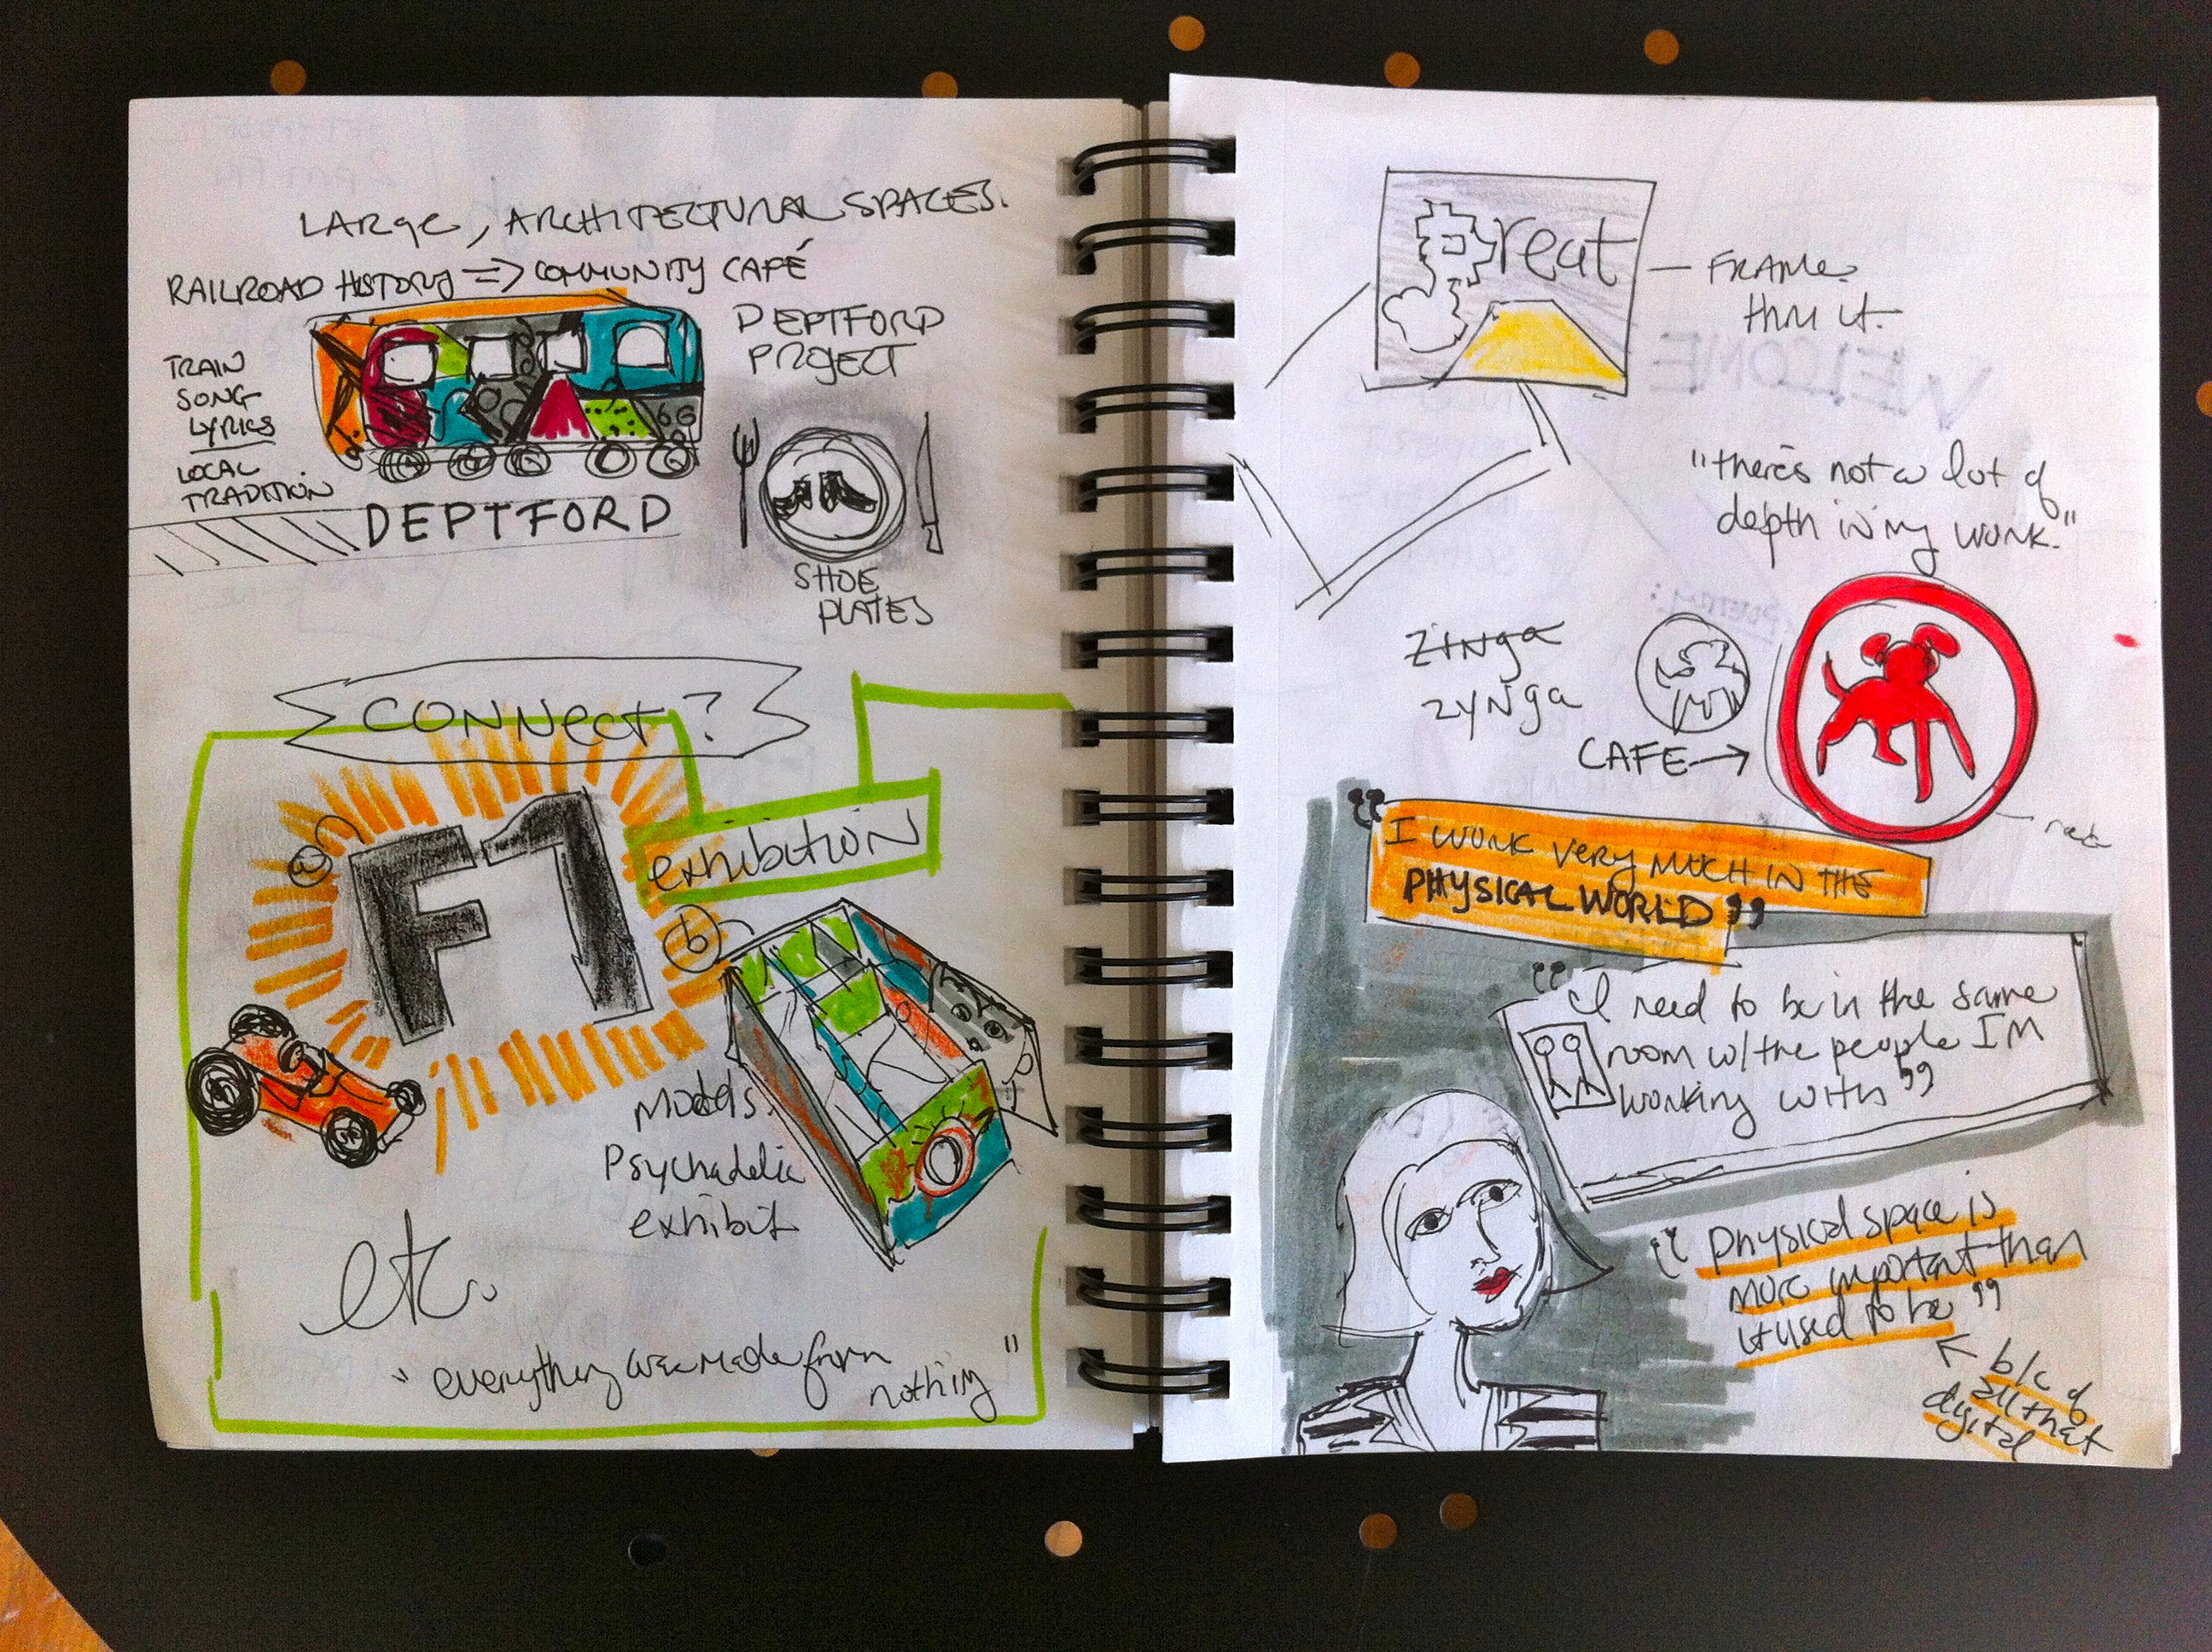 LARge, ARCHITECTURAL SPACES.
RAILROAD HISTORY => COMMUNITY CAFÉ
DEPTFORD
PROJECT
TRAIN
SONG
LYRICS
LOCAL
TRADITION
DEPTFORD
SHOE
PLATES
CONNect?
a
F1
exhibition
b
Models.
Psychadelic
exhibit
etc.
"everything was made from
nothing"
reat
FRAMe
thru it.
"there's not a lot of
depth in my work."
ZINga
zyNga
CAFE→
"I work very much in the
PHYSICAL WORLD"
"I need to be in the same
room w/the people I'M
working with"
"physical space is
more important than
it used to be"
← b/c of
all that
digital